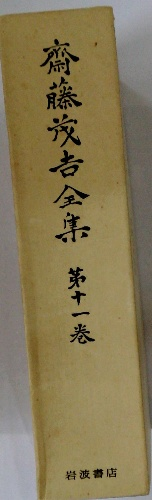 齋藤茂吉全集
第十一巻
岩波書店